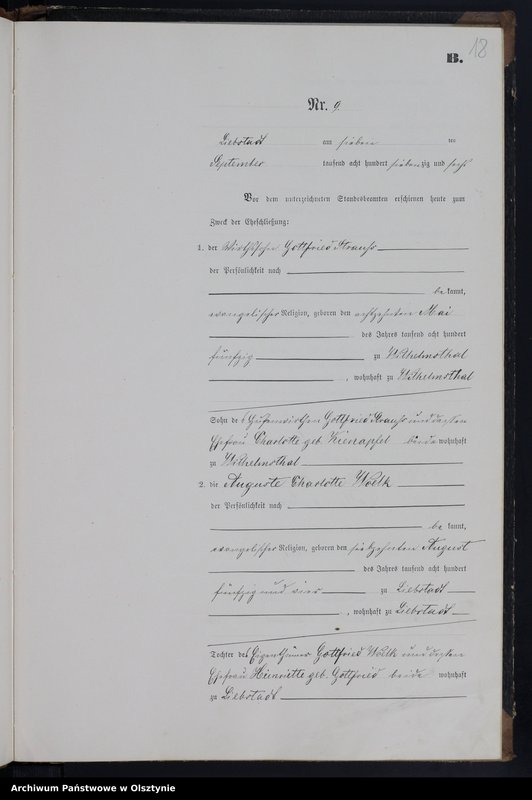 B. 18
Nr. 9
Liebstadt am sieben ten
September tausend acht hundert siebenzig und sechs
Vor dem unterzeichneten Standesbeamten erschienen heute zum
Zweck der Eheschließung:
1. der Wirthssohn Gottfried Strauss
der Persönlichkeit nach
be kannt,
evangelischer Religion, geboren den achtzehnten Mai
des Jahres tausend acht hundert
fünfzig zu Wilhelmsthal
, wohnhaft zu Wilhelmsthal
Sohn des Hufenwirthen Gottfried Strauss und dessen
Ehefrau Charlotte geb. Kienapfel beide wohnhaft
zu Wilhelmsthal
2. die Auguste Charlotte Woelk
der Persönlichkeit nach
be kannt,
evangelischer Religion, geboren den siebzehnten August
des Jahres tausend acht hundert
fünfzig und vier zu Liebstadt
, wohnhaft zu Liebstadt
Tochter des Eigenthümer Gottfried Woelk und dessen
Ehefrau Heinriette geb. Gottfried beide wohnhaft
zu Liebstadt
Archiwum Państwowe w Olsztynie